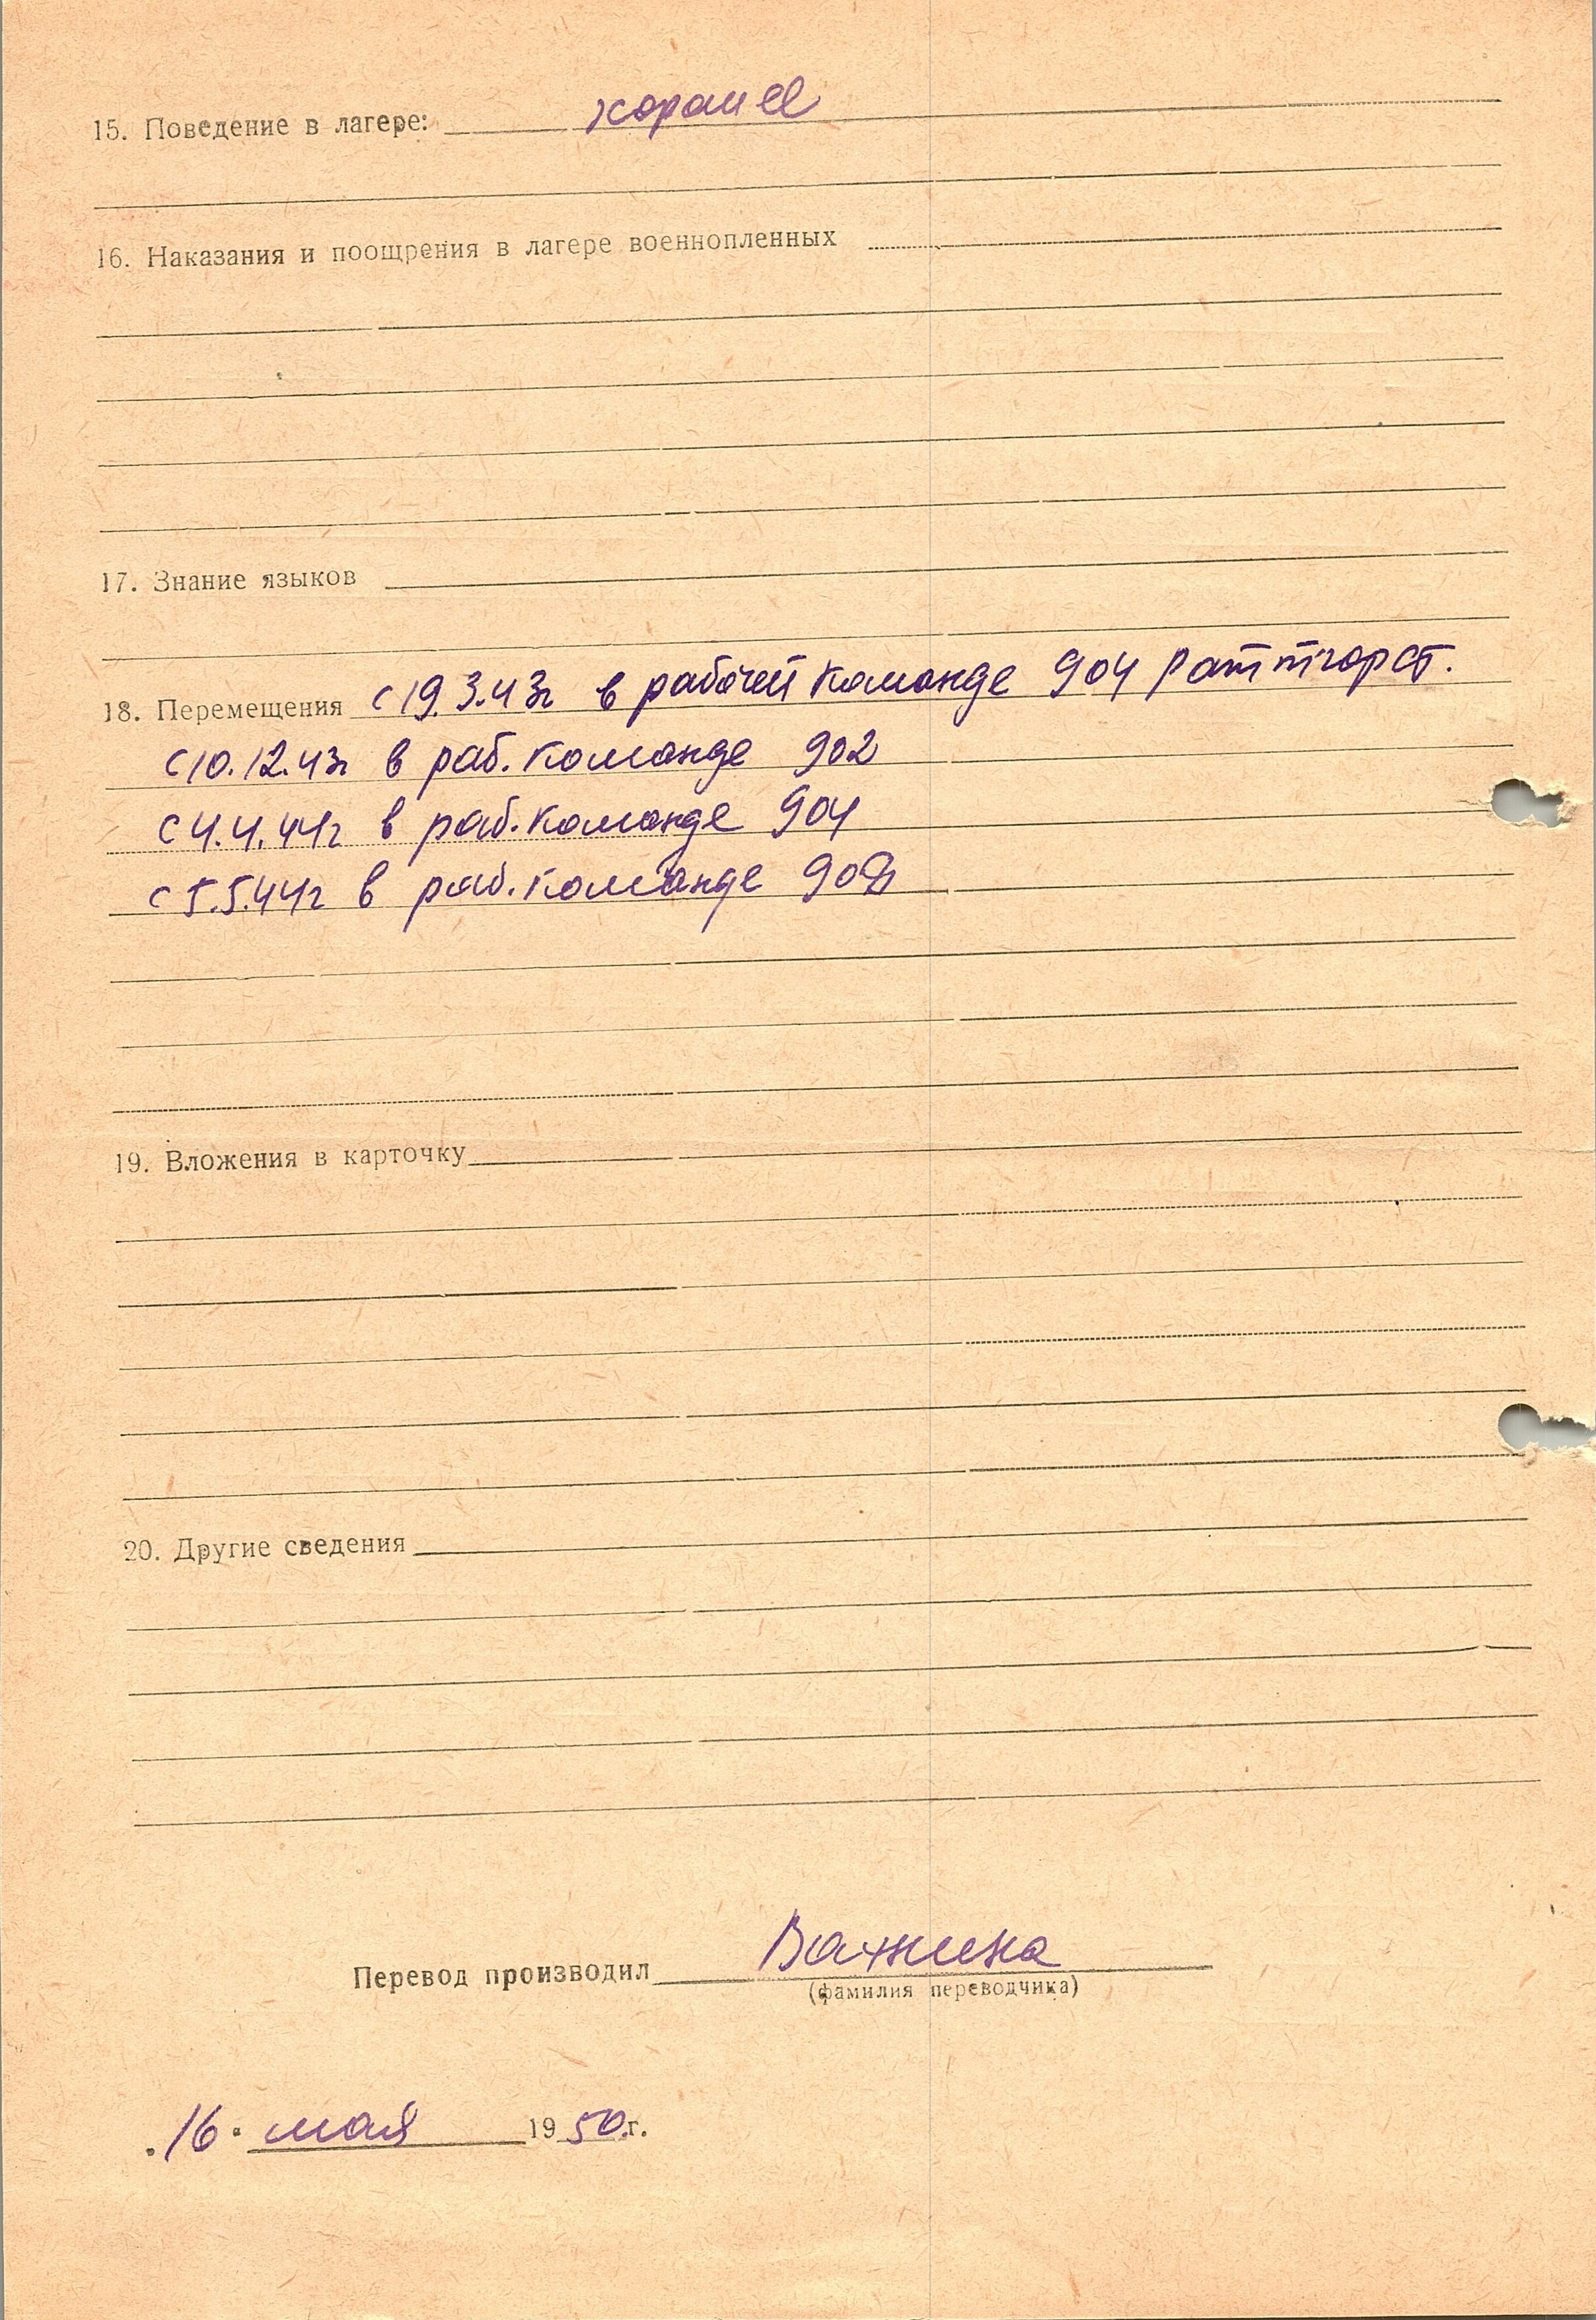 15. Поведение в лагере: хорошее
16. Наказания и поощрения в лагере военнопленных
17. Знание языков
18. Перемещения с 19.3.43г в рабочей команде 904
с 10.12.43г в раб. команде 902
с 4.4.44г в раб. команде 904
с 5.5.44г в раб. команде
19. Вложения в карточку
20. Другие сведения
Перевод производил Важнина
(фамилия переводчика)
„16“ мая 1950 г.